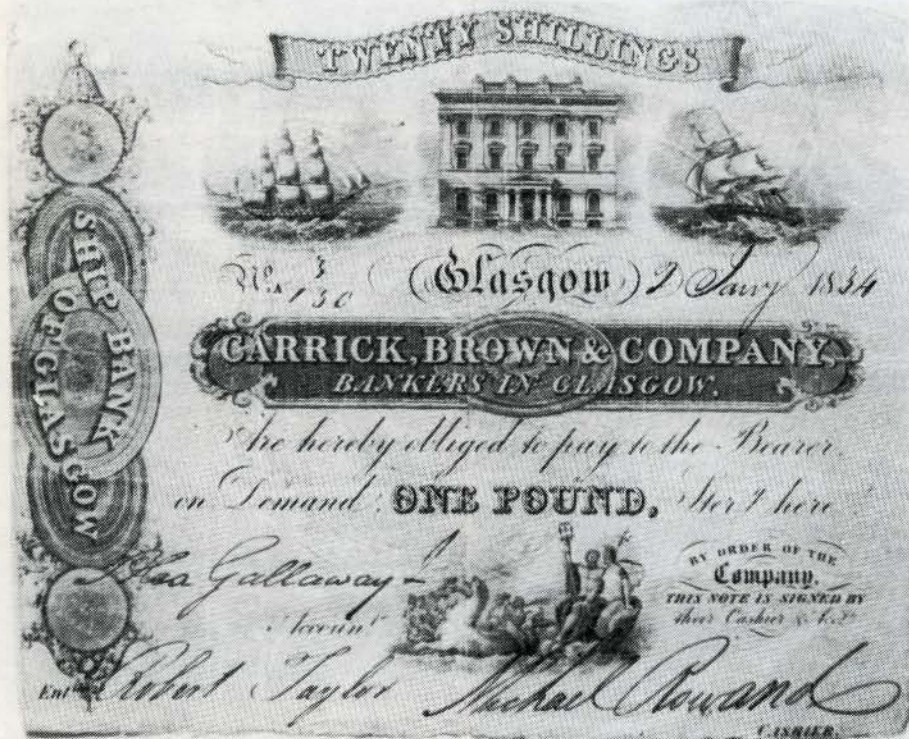 TWENTY SHILLINGS
SHIP BANK
OF GLASGOW
No. 3/130 Glasgow 2 Jany 1834
CARRICK, BROWN & COMPANY,
BANKERS IN GLASGOW.
Are hereby obliged to pay to the Bearer
on Demand ONE POUND, Sterg here
BY ORDER OF THE
Company.
THIS NOTE IS SIGNED BY
their Cashier &
Gallaway
Accountt
Entd Robert Taylor Michael Rowand
CASHIER.